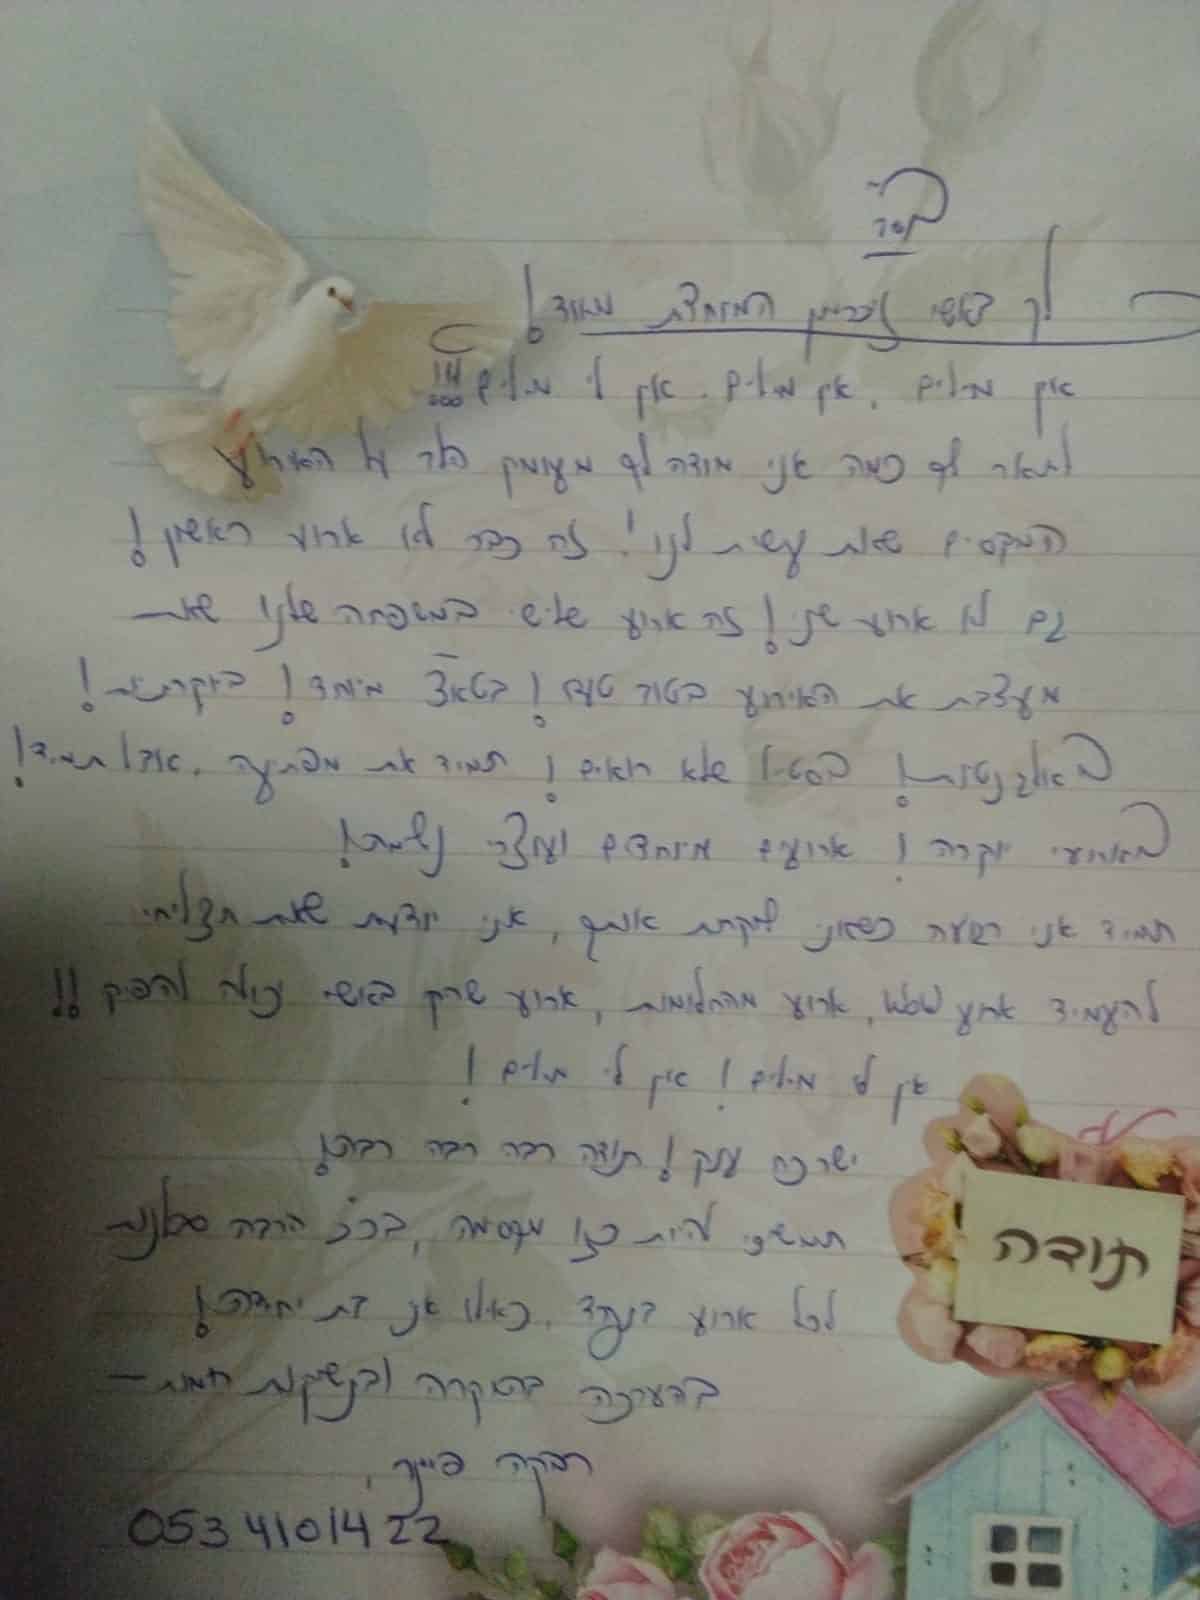 בס"ד
לך באשי המיוחדת מאוד!
אין מילים, אין מילים. אין לי מילים!!!
לתאר לך כמה אני מודה לך מעומק הלב על הארוע
המקסים שאת עשית לנו! זה כבר לא ארוע ראשון!
גם לא ארוע שני! זה ארוע שלישי במשפחה שלנו שאת
מעצבת את האירוע בטוב טעם! בטאצ' מיוחד! ביוקרתיות!
באלגנטיות! בסטיל שלא רואים! תמיד את מפתיעה. אבל תמיד!
באירועי יוקרה! ארועים מיוחדים ועוצרי נשימה!
תמיד אני רגועה כשאני לוקחת אותך, אני יודעת שאת תצליחי
להעמיד ארוע wow, ארוע מהחלומות, ארוע שרק באשי יכולה להפיק!!
אין לי מילים! אין לי מילים!
ישר כח ענק! תודה רבה רבה רבה!
תמשיכי להיות כזו מקסימה, בכ"כ הרבה סבלנות
לכל ארוע בנפרד. כאילו אני בת יחידה!
בהערכה בהוקרה ובנשיקות חמות-
רבקה פיינר,
053 4101422
תודה